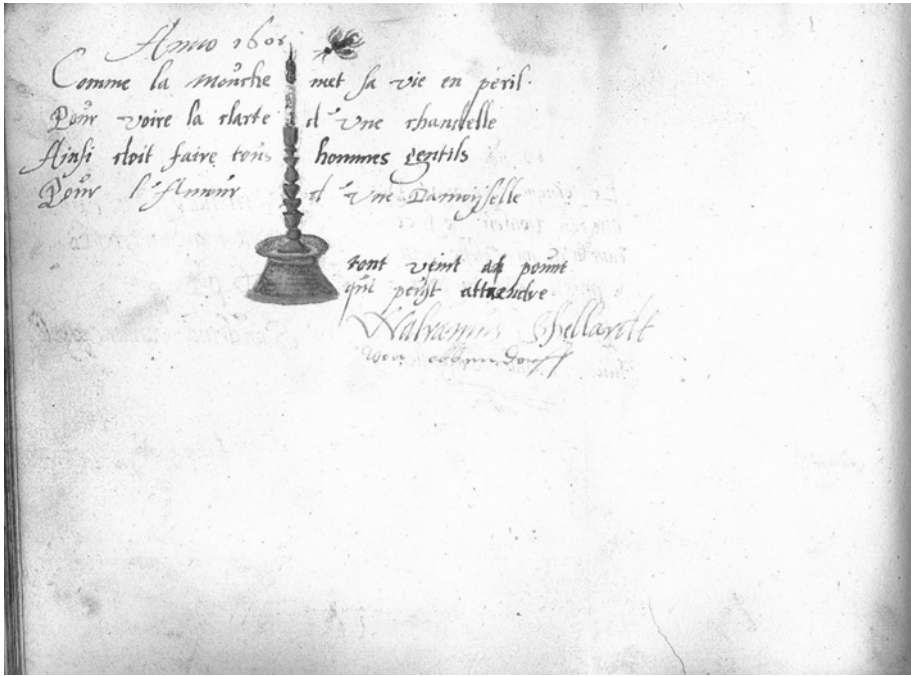 Anno 160
Comme la Moůche met sa vie en peril.
Poůr voire la clarte d'vne chandelle
Ainsi doit faire toůs hommes gentils
Poůr l'Amoůr d'vne Damoyselle
tout veint a point
qůi peůt attendre
Walramus Schellardt
Von Obbendorff